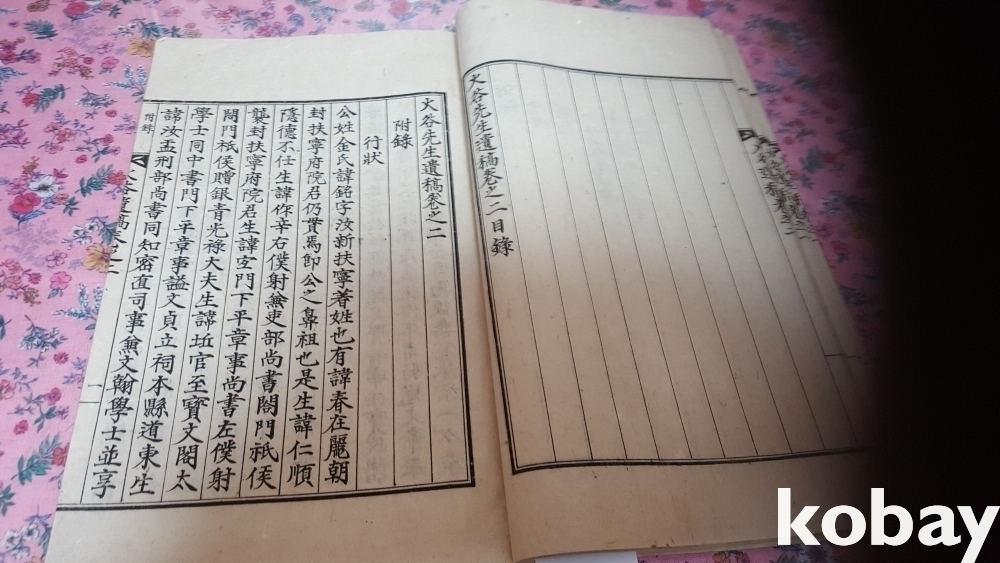 火谷先生遺稿卷之二目錄
火谷先生遺稿卷之二
附錄
行狀
公姓金氏諱銘字汝新扶寧著姓也有諱春在麗朝
封扶寧府院君仍貫焉卽公之鼻祖也是生諱仁順
隱德不仕生諱作辛右僕射兼吏部尚書閤門祗侯
襲封扶寧府院君生諱宖門下平章事尚書左僕射
閤門祗侯贈銀青光祿大夫生諱坵官至寶文閣太
學士同中書門下平章事謚文貞立祠本縣道東生
諱汝盂刑部尚書同知密直司事兼文翰學士並享
附錄
火谷遺稿卷之二
一
kobay